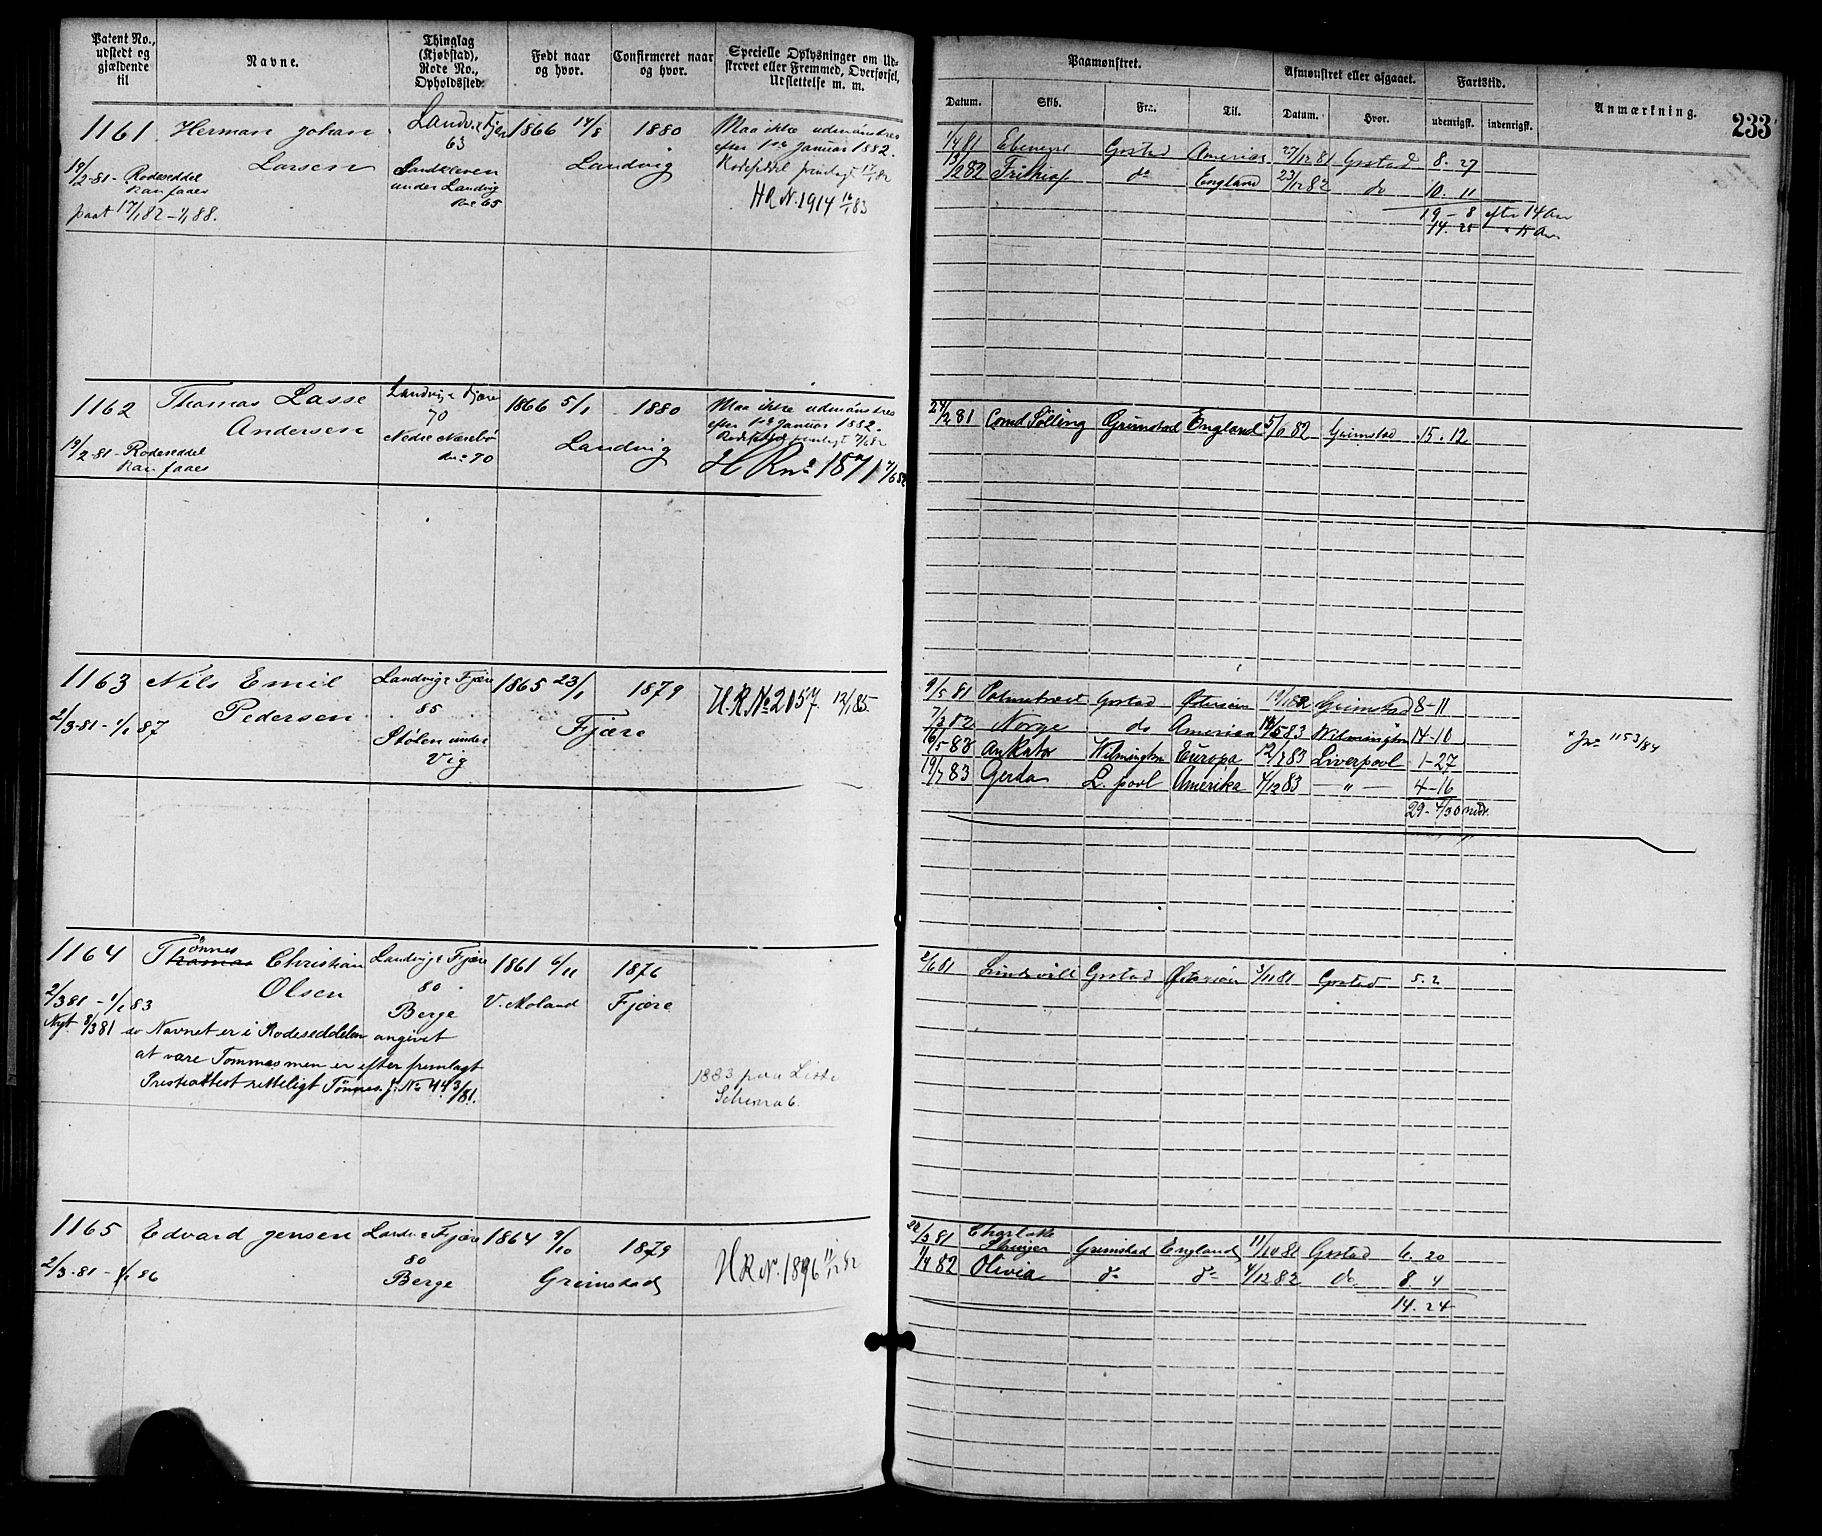 Patent No., udstedt og gjældende til
Navne.
Thinglag (Kjøbstad), Rode No., Opholdssted.
Født naar og hvor.
Confirmeret naar og hvor.
Specielle Oplysninger om Udskrevet eller Fremmed, Overførsel, Udslettelse m. m.
Paamønstret.
Datum.
Skib.
Fra.
Til.
Afmønstret eller afgaaet.
Datum.
Hvor.
Fartstid.
udenrigsk.
indenrigsk.
Anmærkning.
233
1161 Herman Johan Larsen
19/2-81 - Rodeseddel
kan faaes
paat 17/1 82 - 1/1 88.
Landv. & Fjære
63
Sandkleven
under Landvig
Rn: 65
1866 14/8
1880
Landvig
Maa ikke udmönstres
efter 1ste Januar 1882.
Rodeseddel fremlagt 17/1 82
H R N. 1914 16/1 83
1/4 81 Ebenezer Grstad Amerika 27/12 81 Grstad 8. 27
13/2 82 Frithiof do England 23/12 82 do 10. 11
19 - 8 efter 14 Aar
14. 25 " 15 Ar.
1162 Thomas Lasse Andersen
19/2-81 - Rodeseddel
kan faaes
Landvig & Fjære
70
Nedre Næsebø
Rn: 70
1866 5/1
1880
Landvig
Maa ikke udmönstres
efter 1ste Januar 1882.
Rodeseddel fremlagt 7/6 82
H R no 1871 7/6 82
24/2 81 Comd Sölling Grimstad England 5/6 82 Grimstad 15. 12
1163 Nils Emil Pedersen
2/3-81 - 1/1 87
Landvig & Fjære
85
Stölen under
Vig
1865 23/1
1879
Fjære
H. R. No 2057 12/1 85.
9/5 81 Palmetræet Grstad Østersøen Grimstad 8-11
7/3 82 Norge do Amerika 14/5 83 Wilmington 14-10
16/5 83 Ankatar Wilmington Europa 12/7 83 Liverpool 1-27
19/7 83 Gerda L. pool Amerika 4/12 83 - " - 4-16
29 - 4/30 mdr.
Jno 1153/84
1164 Thomas Tönnes Christian Olsen
2/3 81 - 1/1 83
Nyt. 8/3 81 do
Landvig & Fjære
80
Berge
1861 6/11
V. Moland
1876
Fjære
Navnet er i Rodeseddelen angivet
at være Tommes men er efter fremlagt
Præsteattest retteligt Tönnes. J: No 44 3/81.
1883 paa Liste
Schema 6.
2/6 81 Grstad Østersöen 3/11 81 Grstad 5. 2
1165 Edvard Jensen
2/3-81 - 1/1 86
Landv. & Fjære
80
Berge
1864 9/10
1879
Grimstad
H R N. 1896 11/12 82
22/3 81 Charlotte
Stringer Grimstad England 11/10 81 Grstad 6. 20
1/4 82 Olivia do do 4/12 82 do. 8. 4
14. 24